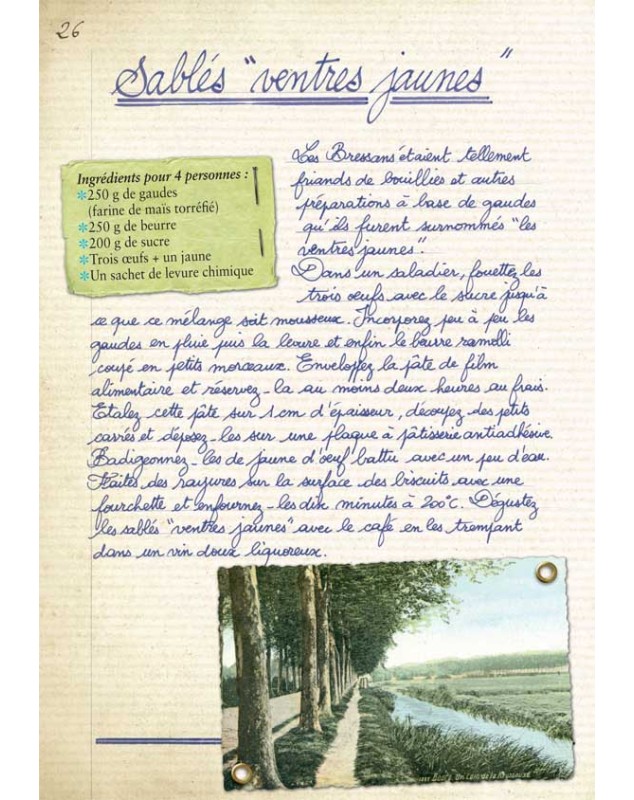 26
Sablés "ventres jaunes"
Ingrédients pour 4 personnes :
*250 g de gaudes
(farine de maïs torréfié)
*250 g de beurre
*200 g de sucre
*Trois œufs + un jaune
*Un sachet de levure chimique
Les Bressans étaient tellement
friands de bouillies et autres
préparations à base de gaudes
qu'ils furent surnommés "les
ventres jaunes".
Dans un saladier, fouettez les
trois œufs avec le sucre jusqu'à
ce que ce mélange soit mousseux. Incorporez peu à peu les
gaudes en pluie puis la levure et enfin le beurre ramolli
coupé en petits morceaux. Enveloppez la pâte de film
alimentaire et réservez-la au moins deux heures au frais.
Etalez cette pâte sur 1 cm d'épaisseur, découpez des petits
carrés et déposez-les sur une plaque à pâtisserie antiadhésive.
Badigeonnez-les de jaune d'œuf battu avec un peu d'eau.
Faites des rayures sur la surface des biscuits avec une
fourchette et enfournez-les dix minutes à 200°C. Dégustez
les sablés "ventres jaunes" avec le café en les trempant
dans un vin doux liquoreux.
Bourg. Un Coin de la Reyssouze